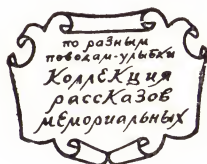 по разным
поводам-улыбки
Коллекция
рассказов
мемориальных